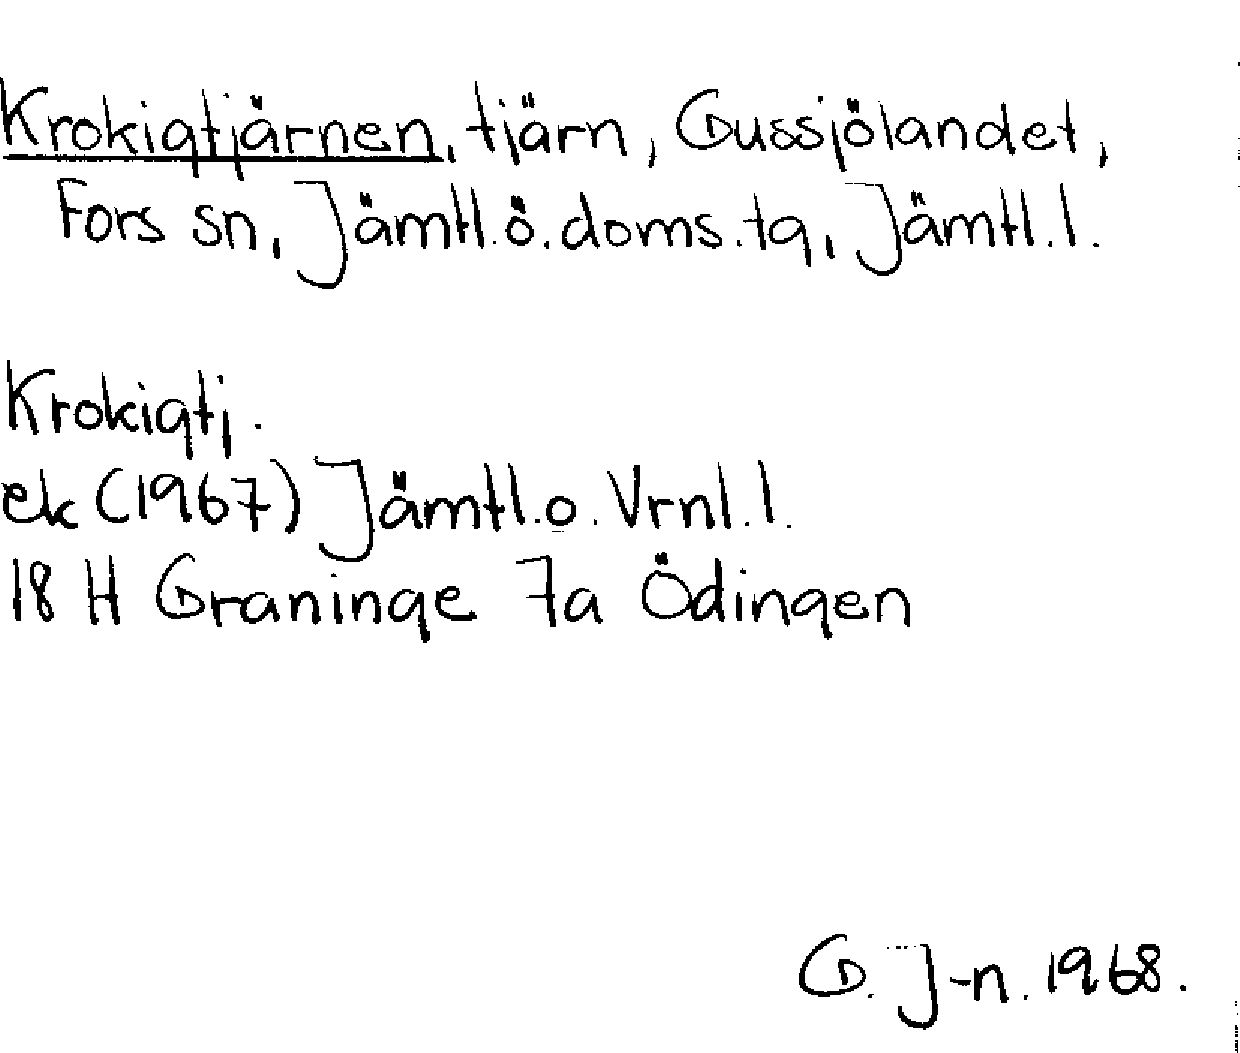 Krokigtjärnen, tjärn, Gussjölandet,
Fors sn, Jämtl.ö.doms.tg, Jämtl.l.
Krokigtj.
ek (1967) Jämtl.o.Vrnl.l.
18 H Graninge 7a Ödingen
G. J-n. 1968.